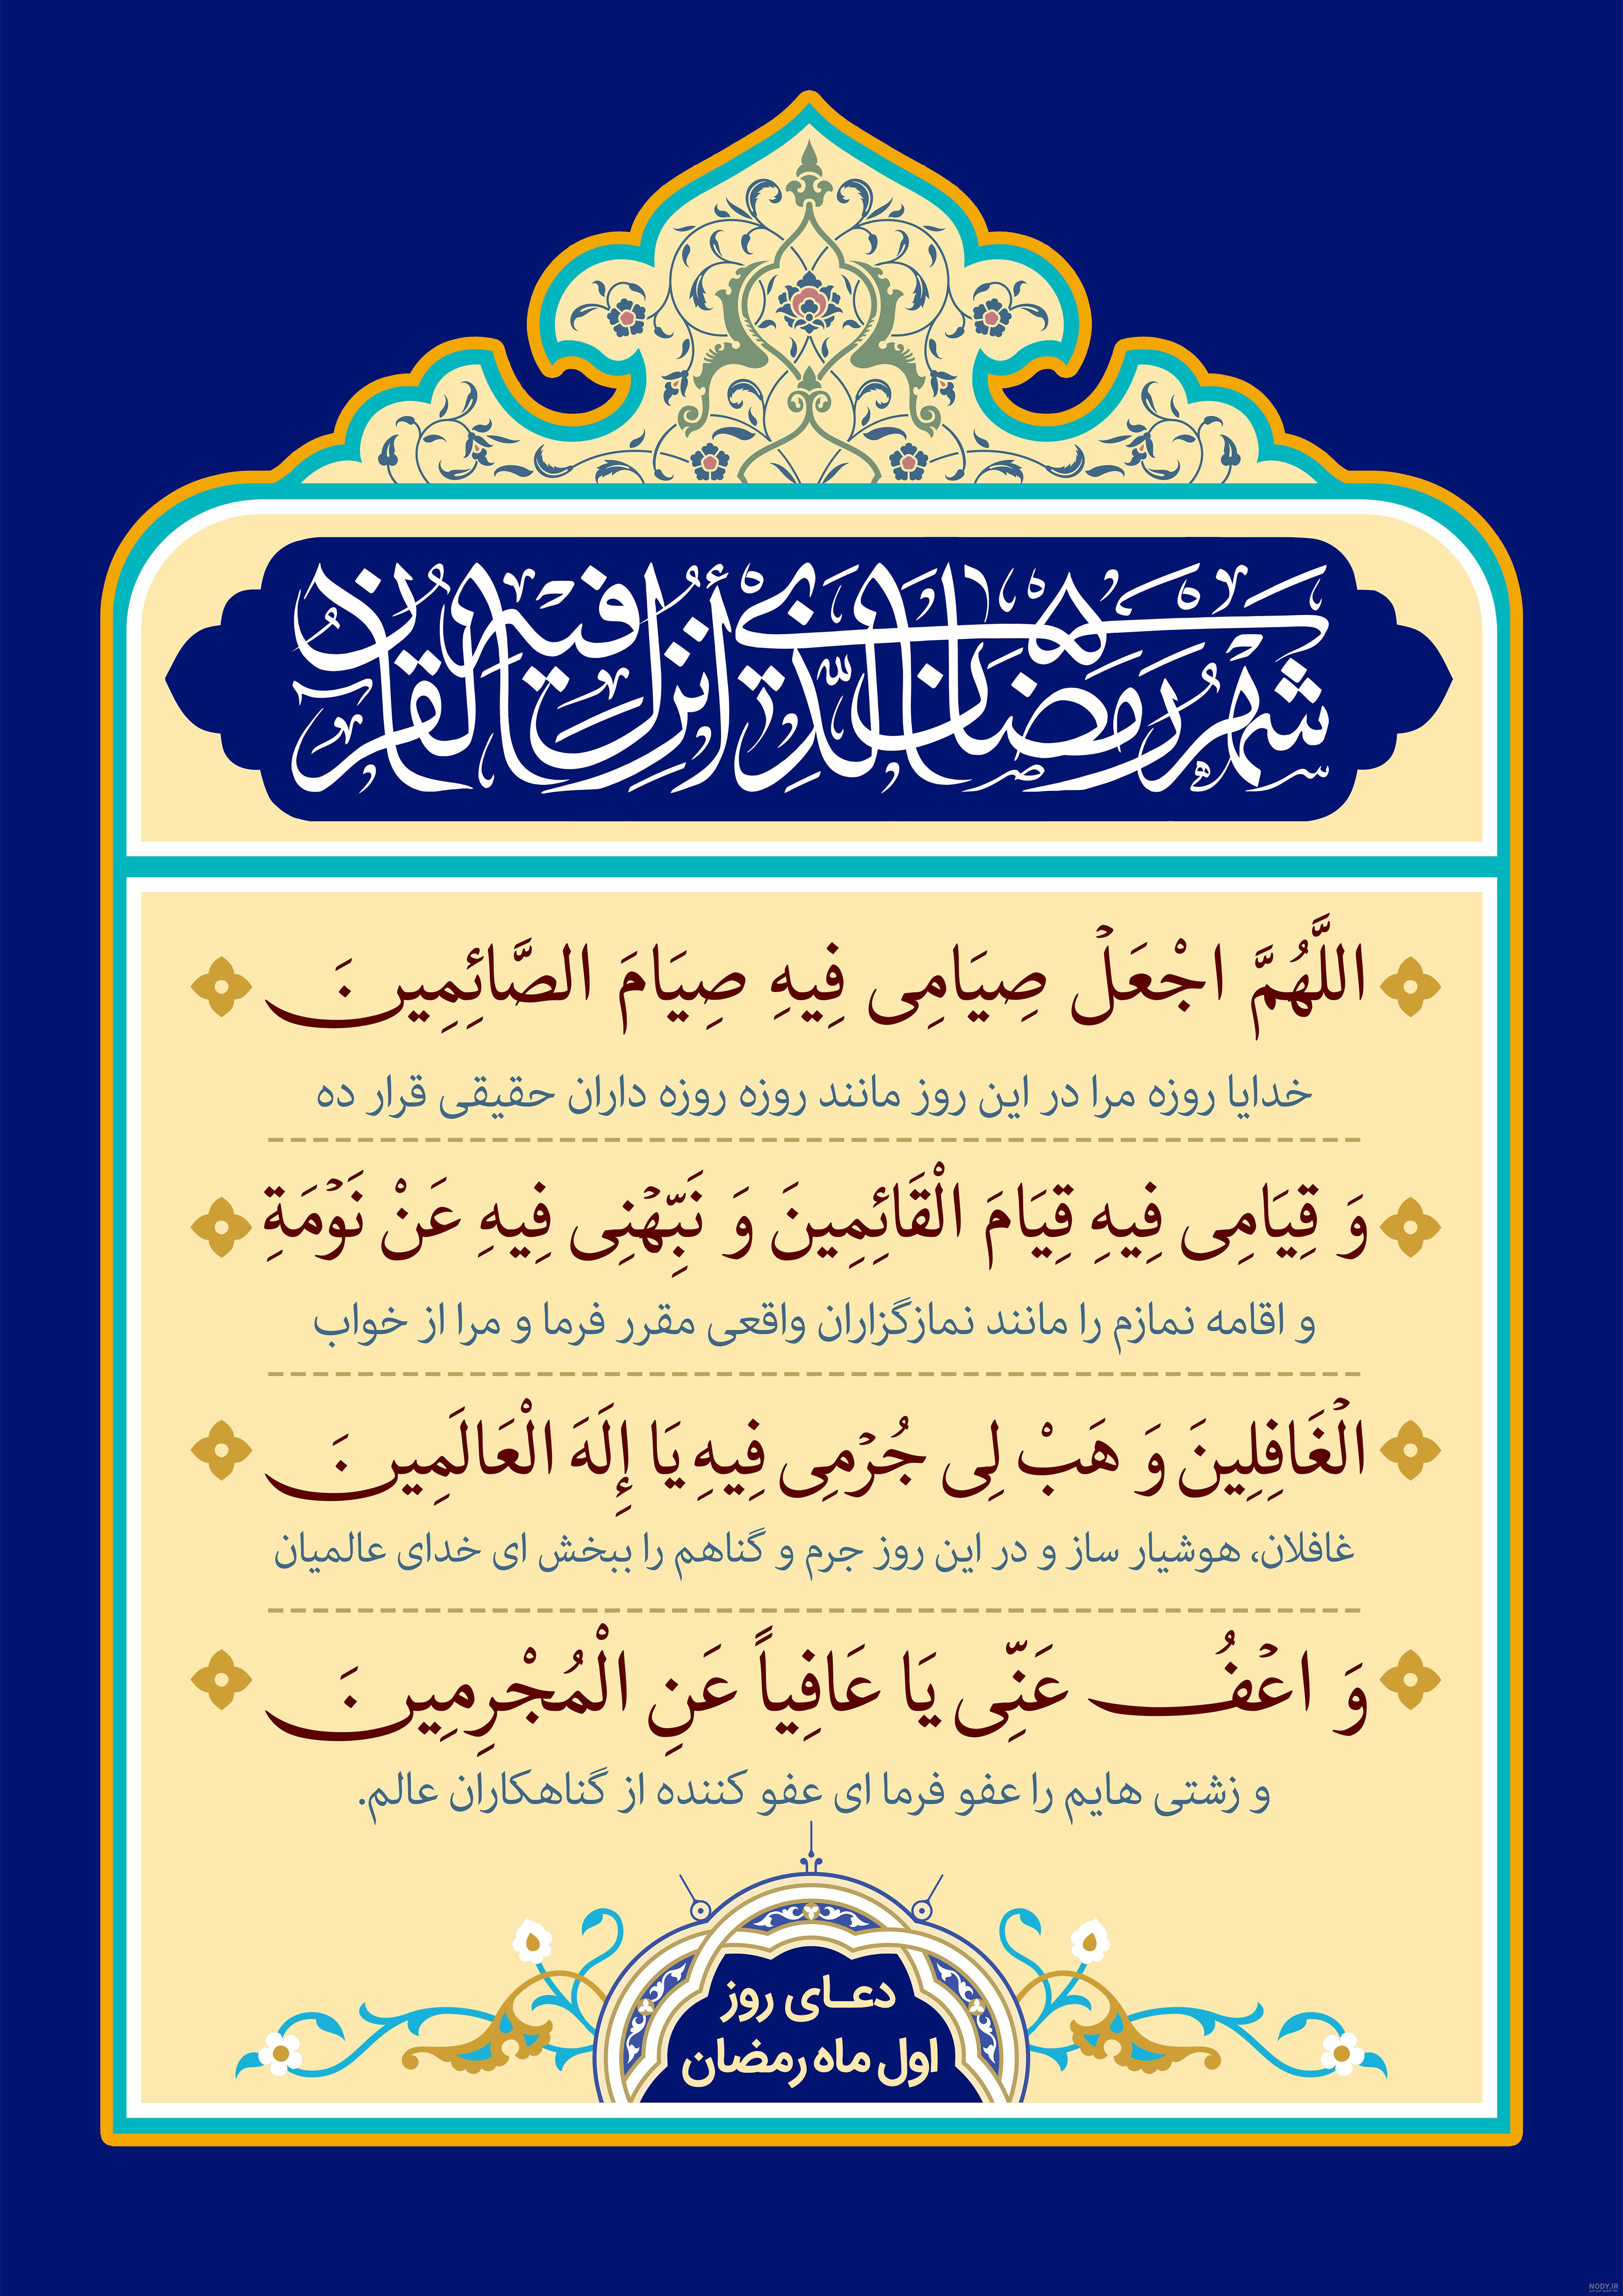 شَهْرُ رَمَضَانَ الَّذِي أُنْزِلَ فِيهِ الْقُرْآنُ
اللَّهُمَّ اجْعَلْ صِيَامِی فِيهِ صِيَامَ الصَّائِمِينَ
خدایا روزه مرا در این روز مانند روزه روزه داران حقیقی قرار ده
وَ قِيَامِی فِيهِ قِيَامَ الْقَائِمِينَ وَ نَبِّهْنِی فِيهِ عَنْ نَوْمَةِ
و اقامه نمازم را مانند نمازگزاران واقعی مقرر فرما و مرا از خواب
الْغَافِلِينَ وَ هَبْ لِی جُرْمِی فِيهِ يَا إِلَهَ الْعَالَمِينَ
غافلان، هوشیار ساز و در این روز جرم و گناهم را ببخش ای خدای عالمیان
وَ اعْفُ عَنِّی يَا عَافِياً عَنِ الْمُجْرِمِينَ
و زشتی هایم را عفو فرما ای عفو کننده از گناهکاران عالم.
دعـای روز
اول ماه رمضان
NODY.IR